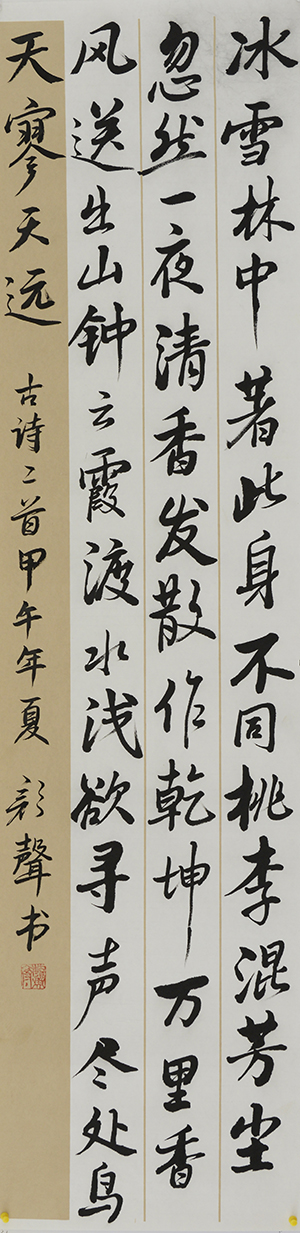 冰雪林中著此身不同桃李混芳尘
忽然一夜清香发散作乾坤万里香
风送出山钟云霞渡水浅欲寻声尽处鸟
天寥天远
古诗二首甲午年夏 彩聲书